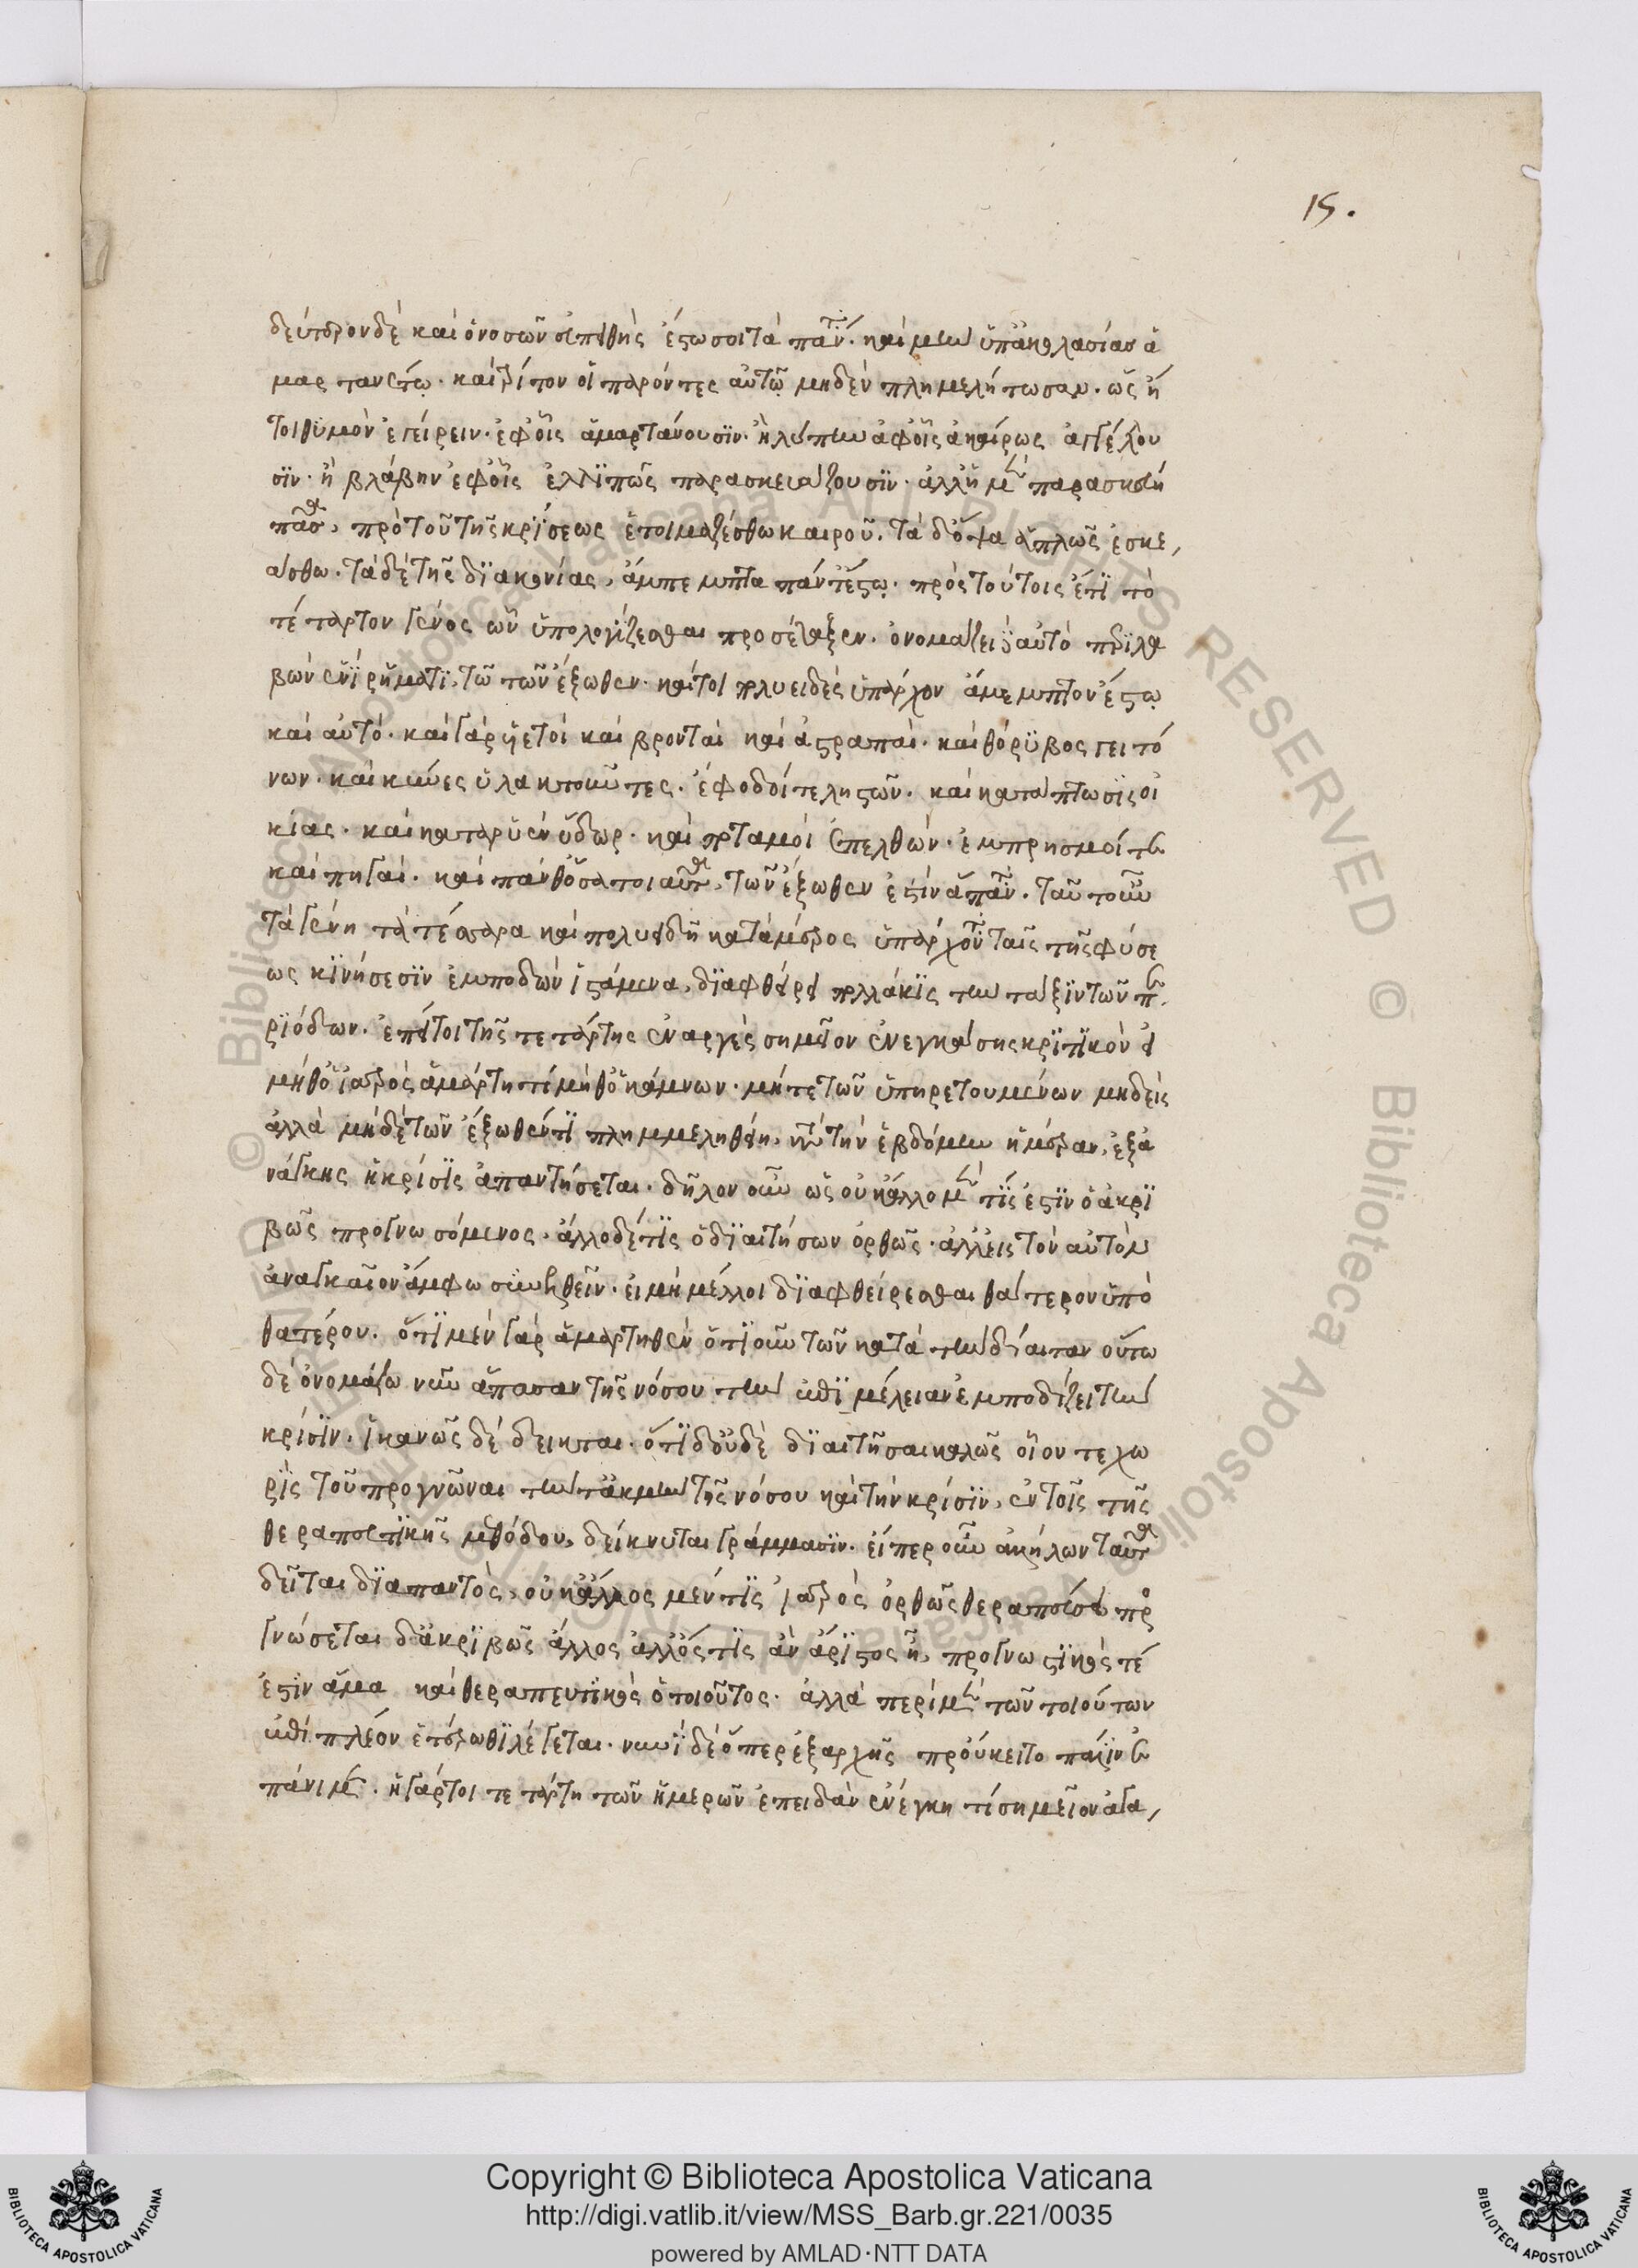 15.
δεύτερον δὲ καὶ ὁ νοσῶν εὐπειθὴς ἔστω σοι τὰ πάντα. καὶ μὴν ὑπ' ἀκολασίας ἁ
μαρτανέτω. καὶ τρίτον οἱ παρόντες αὐτῷ μηδὲν πλημελήτωσαν. ὡς ἤ
τοι θυμὸν ἐγείρειν. ἐφ' οἷς ἁμαρτάνουσιν. ἢ λύπην ἀφ' οἷς ἀκαίρως ἀγγέλου
σιν. ἢ βλάβην ἐφ' οἷς ἐλλιπῶς παρασκευάζουσιν. ἀλλ' ἡ μὲν παρασκευὴ
πᾶσα, πρὸ τοῦ τῆς κρίσεως ἑτοιμαζέσθω καιροῦ. τὰ δ' ὄντα ἁπλῶς ἐσκε,
άσθω. τὰ δὲ τῆς διακονίας, ἄμπεμπτα πάντ' ἔστω. πρὸς τούτοις ἔτι τὸ
τέταρτον γένος ὧν ὑπολογίζεσθαι προσέταξεν. ὀνομάζει δ' αὐτὸ περιλα
βὼν ἑνὶ ῥήματι, τῶ τῶν ἔξωθεν. καίτοι πολυειδὲς ὑπάρχον ἄμεμπτον ἔστω
καὶ αὐτό. καὶ γὰρ ὑετοὶ καὶ βρονταὶ καὶ ἀστραπαὶ. καὶ θόρυβος γειτό
νων. καὶ κύνες ὑλακτοῦντες. ἔφοδοί τε ληστῶν. καὶ κατάπτωσις οἰ
κίας. καὶ καταρυὲν ὕδωρ. καὶ ποταμὸς ἐπελθών. ἐμπρησμοί τε
καὶ πηγαί. καὶ πάνθ' ὅσα τοιαῦτα, τῶν ἔξωθεν ἐστὶν ἅπαντα. ταῦτ' οὖν
τὰ γένη τὰ τέσσαρα καὶ πολυειδῆ κατὰ μέρος ὑπάρχοντα ταῖς τῆς φύσε
ως κινήσεσιν ἐμποδὼν ἱστάμενα, διαφθείρει πολλάκις τὴν τάξιν τῶν πε
ριόδων. ἐπεί τοι τῆς τετάρτης ἐναργὲς σημεῖον ἐνεγκάσης κριτικὸν εἰ
μήθ' ὁ ἰατρὸς ἁμάρτη τι μήθ' ὁ κάμνων. μήτε τῶν ὑπηρετουμένων μηδεὶς
ἀλλὰ μηδὲ τῶν ἔξωθέν τι πλημμεληθείη, κατὰ τὴν ἑβδόμην ἡμέραν, ἐξ ἀ
νάγκης ἡ κρίσις ἀπαντήσεται. δῆλον οὖν ὡς οὐκ ἄλλο μέν τίς ἐστιν ὁ ἀκρι
βῶς προγνωσόμενος. ἄλλο δέ τις ὁ διαιτήσων ὀρθῶς. ἀλλ' εἰς τὸν αὐτὸν
ἀναγκαῖον ἄμφω συνελθεῖν. εἰ μὴ μέλλοι διαφθείρεσθαι θάτερον ὑπὸ
θατέρου. ὅτι μὲν γὰρ ἁμαρτηθὲν ὁτιοῦν τῶν κατὰ τὴν δίαιταν οὕτω
δὲ ὀνομάζω νῦν ἅπασαν τῆς νόσου τὴν ἐπιμέλειαν ἐμποδίζει τὴν
κρίσιν. ἱκανῶς δέδεικται. ὅτι δ' οὐδὲ διαιτῆσαι καλῶς οἷόν τε χω
ρὶς τοῦ προγνῶναι τήν τ' ἀκμὴν τῆς νόσου καὶ τὴν κρίσιν, ἐν τοῖς τῆς
θεραπευτικῆς μεθόδου, δείκνυται γράμμασιν. εἴπερ οὖν ἀλλήλων ταῦτα
δεῖται διαπαντὸς, οὐκ ἄλλος μέν τις ἰατρὸς ὀρθῶς θεραπεύσει προ
γνώσεται δ' ἀκριβῶς ἄλλος ἀλλ' ὅς τις ἂν ἄριστος ἦ, προγνωστικός τέ
ἐστιν ἅμα καὶ θεραπευτικὸς ὁ τοιοῦτος. ἀλλὰ περὶ μὲν τῶν τοιούτων
ἐπὶ πλέον ἑτέρωθι λέγεται. νυνὶ δὲ ὅπερ ἐξ αρχῆς προύκειτο πάλιν ἐ
πάνιμεν. ἡ γάρ τοι τετάρτη τῶν ἡμερῶν ἐπειδὰν ἐνέγκη τί σημεῖον ἀγα,
Copyright © Biblioteca Apostolica Vaticana
http://digi.vatlib.it/view/MSS_Barb.gr.221/0035
powered by AMLAD·NTT DATA